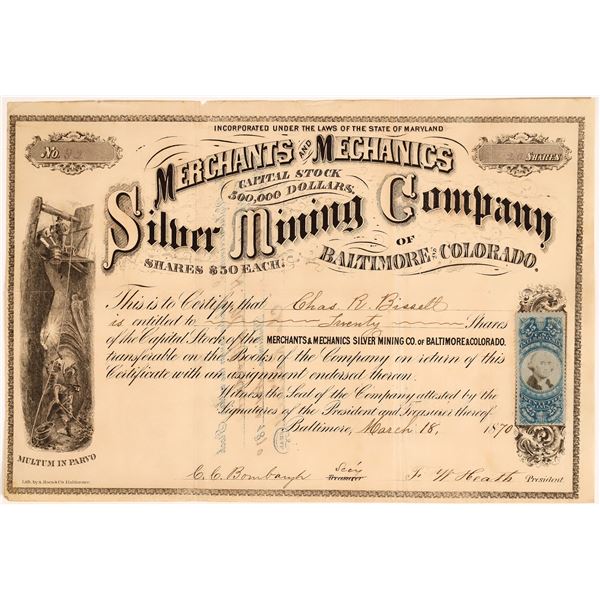 INCORPORATED UNDER THE LAWS OF THE STATE OF MARYLAND
No. 32
20 SHARES
MERCHANTS AND MECHANICS
CAPITAL STOCK
500,000 DOLLARS.
Silver Mining Company
SHARES $50 EACH.
OF
BALTIMORE AND COLORADO.
This is to Certify, that Chas R. Bissell
is entitled to Twenty Shares
of the Capital Stock of the MERCHANTS & MECHANICS SILVER MINING CO. OF BALTIMORE & COLORADO.
transferable on the Books of the Company on return of this
Certificate with an assignment endorsed thereon.
Witness the Seal of the Company attested by the
Signatures of the President and Treasurer thereof.
Baltimore, March 18, 1870
MULTUM IN PARVO
C. C. Bombaugh Secy Treasurer
F W Heath President
Lith. by A. Hoen & Co. Baltimore.